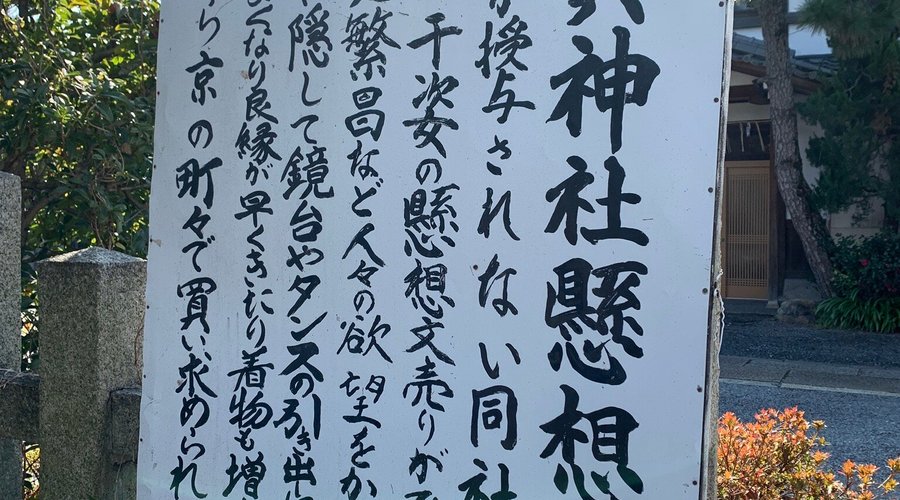 神社懸想
授与されない同社
千姿の懸想文売りが
繁昌など人々の欲望をか
隠して鏡台やタンスの引き出
くなり良縁が早くきたり着物も増
ら京の町々で買い求められ